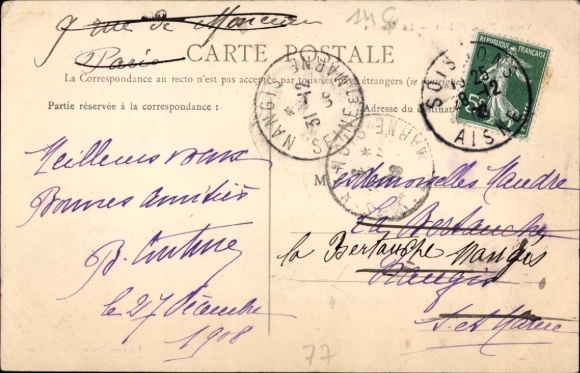 9 rue de Monceau
Paris
148
CARTE POSTALE
La Correspondance au recto n'est pas acceptée par tous les pays étrangers (se renseigner
Partie réservée à la correspondance :
Adresse du destinataire
RÉPUBLIQUE FRANÇAISE
SOISSONS
AISNE
NANGIS
SEINE-ET-MARNE
31-12
Meilleurs vœux
Bonnes amitiés
B.
le 27 décembre
1908
Mesdemoiselles
La Bertauche
la Bertauche Nangis
Nangis
S. et Marne
77